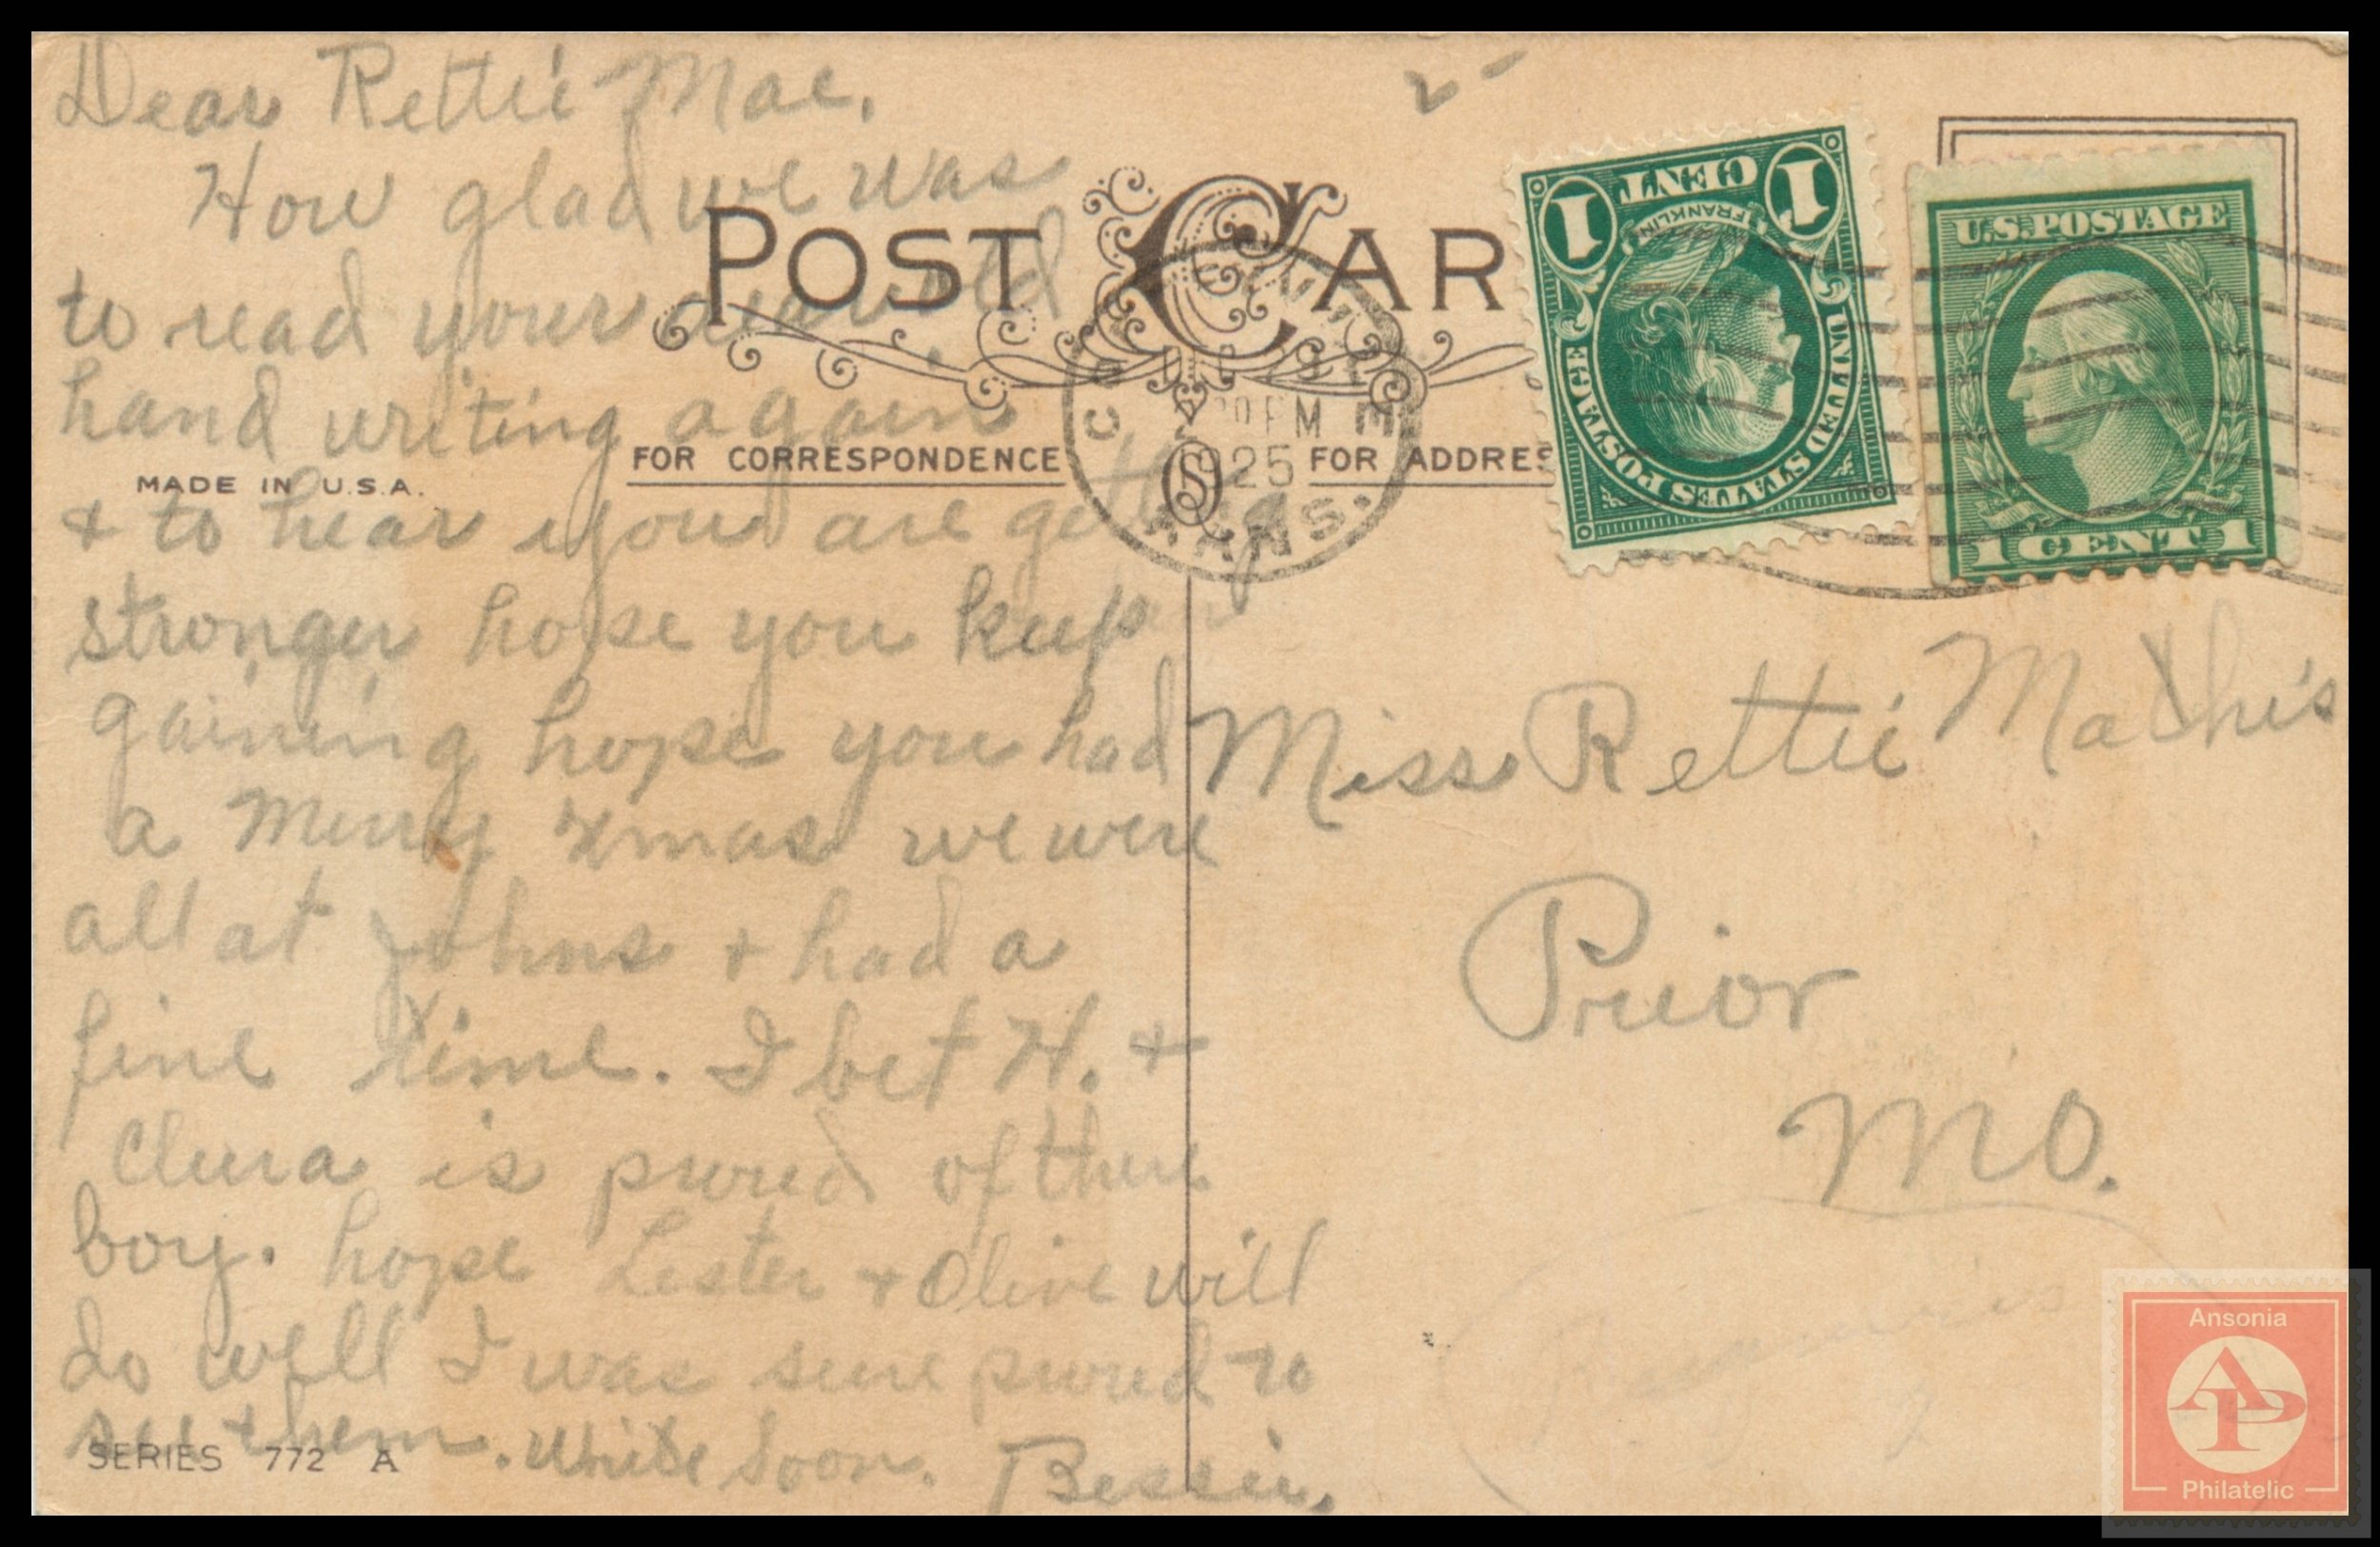 Dear Rettie Mae.
How glad we was
to read your dear old
hand writing again
& to hear you are getting
stronger hope you keep
gaining hope you had
a Merry Xmas we were
all at Johns & had a
fine time. I bet H. &
is pured of there
boy. hope Lester & Olive will
do well I was sure pured to
see them. Write Soon. Bessie.
MADE IN U.S.A.
SERIES 772 A
POST CAR
FOR CORRESPONDENCE
FOR ADDRES
PM
1925
KANS.
1 CENT 1
FRANKLIN
UNITED STATES POSTAGE
U.S. POSTAGE
1 CENT 1
Miss Rettie Mathis
Prior
Mo.
Ansonia
AP
Philatelic